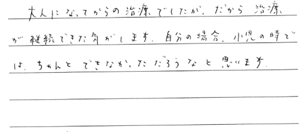 大人になってからの治療でしたが、だから治療
が継続できた気がします。自分の場合、小児の時で
は、ちゃんとできなかっただろうなと思います。